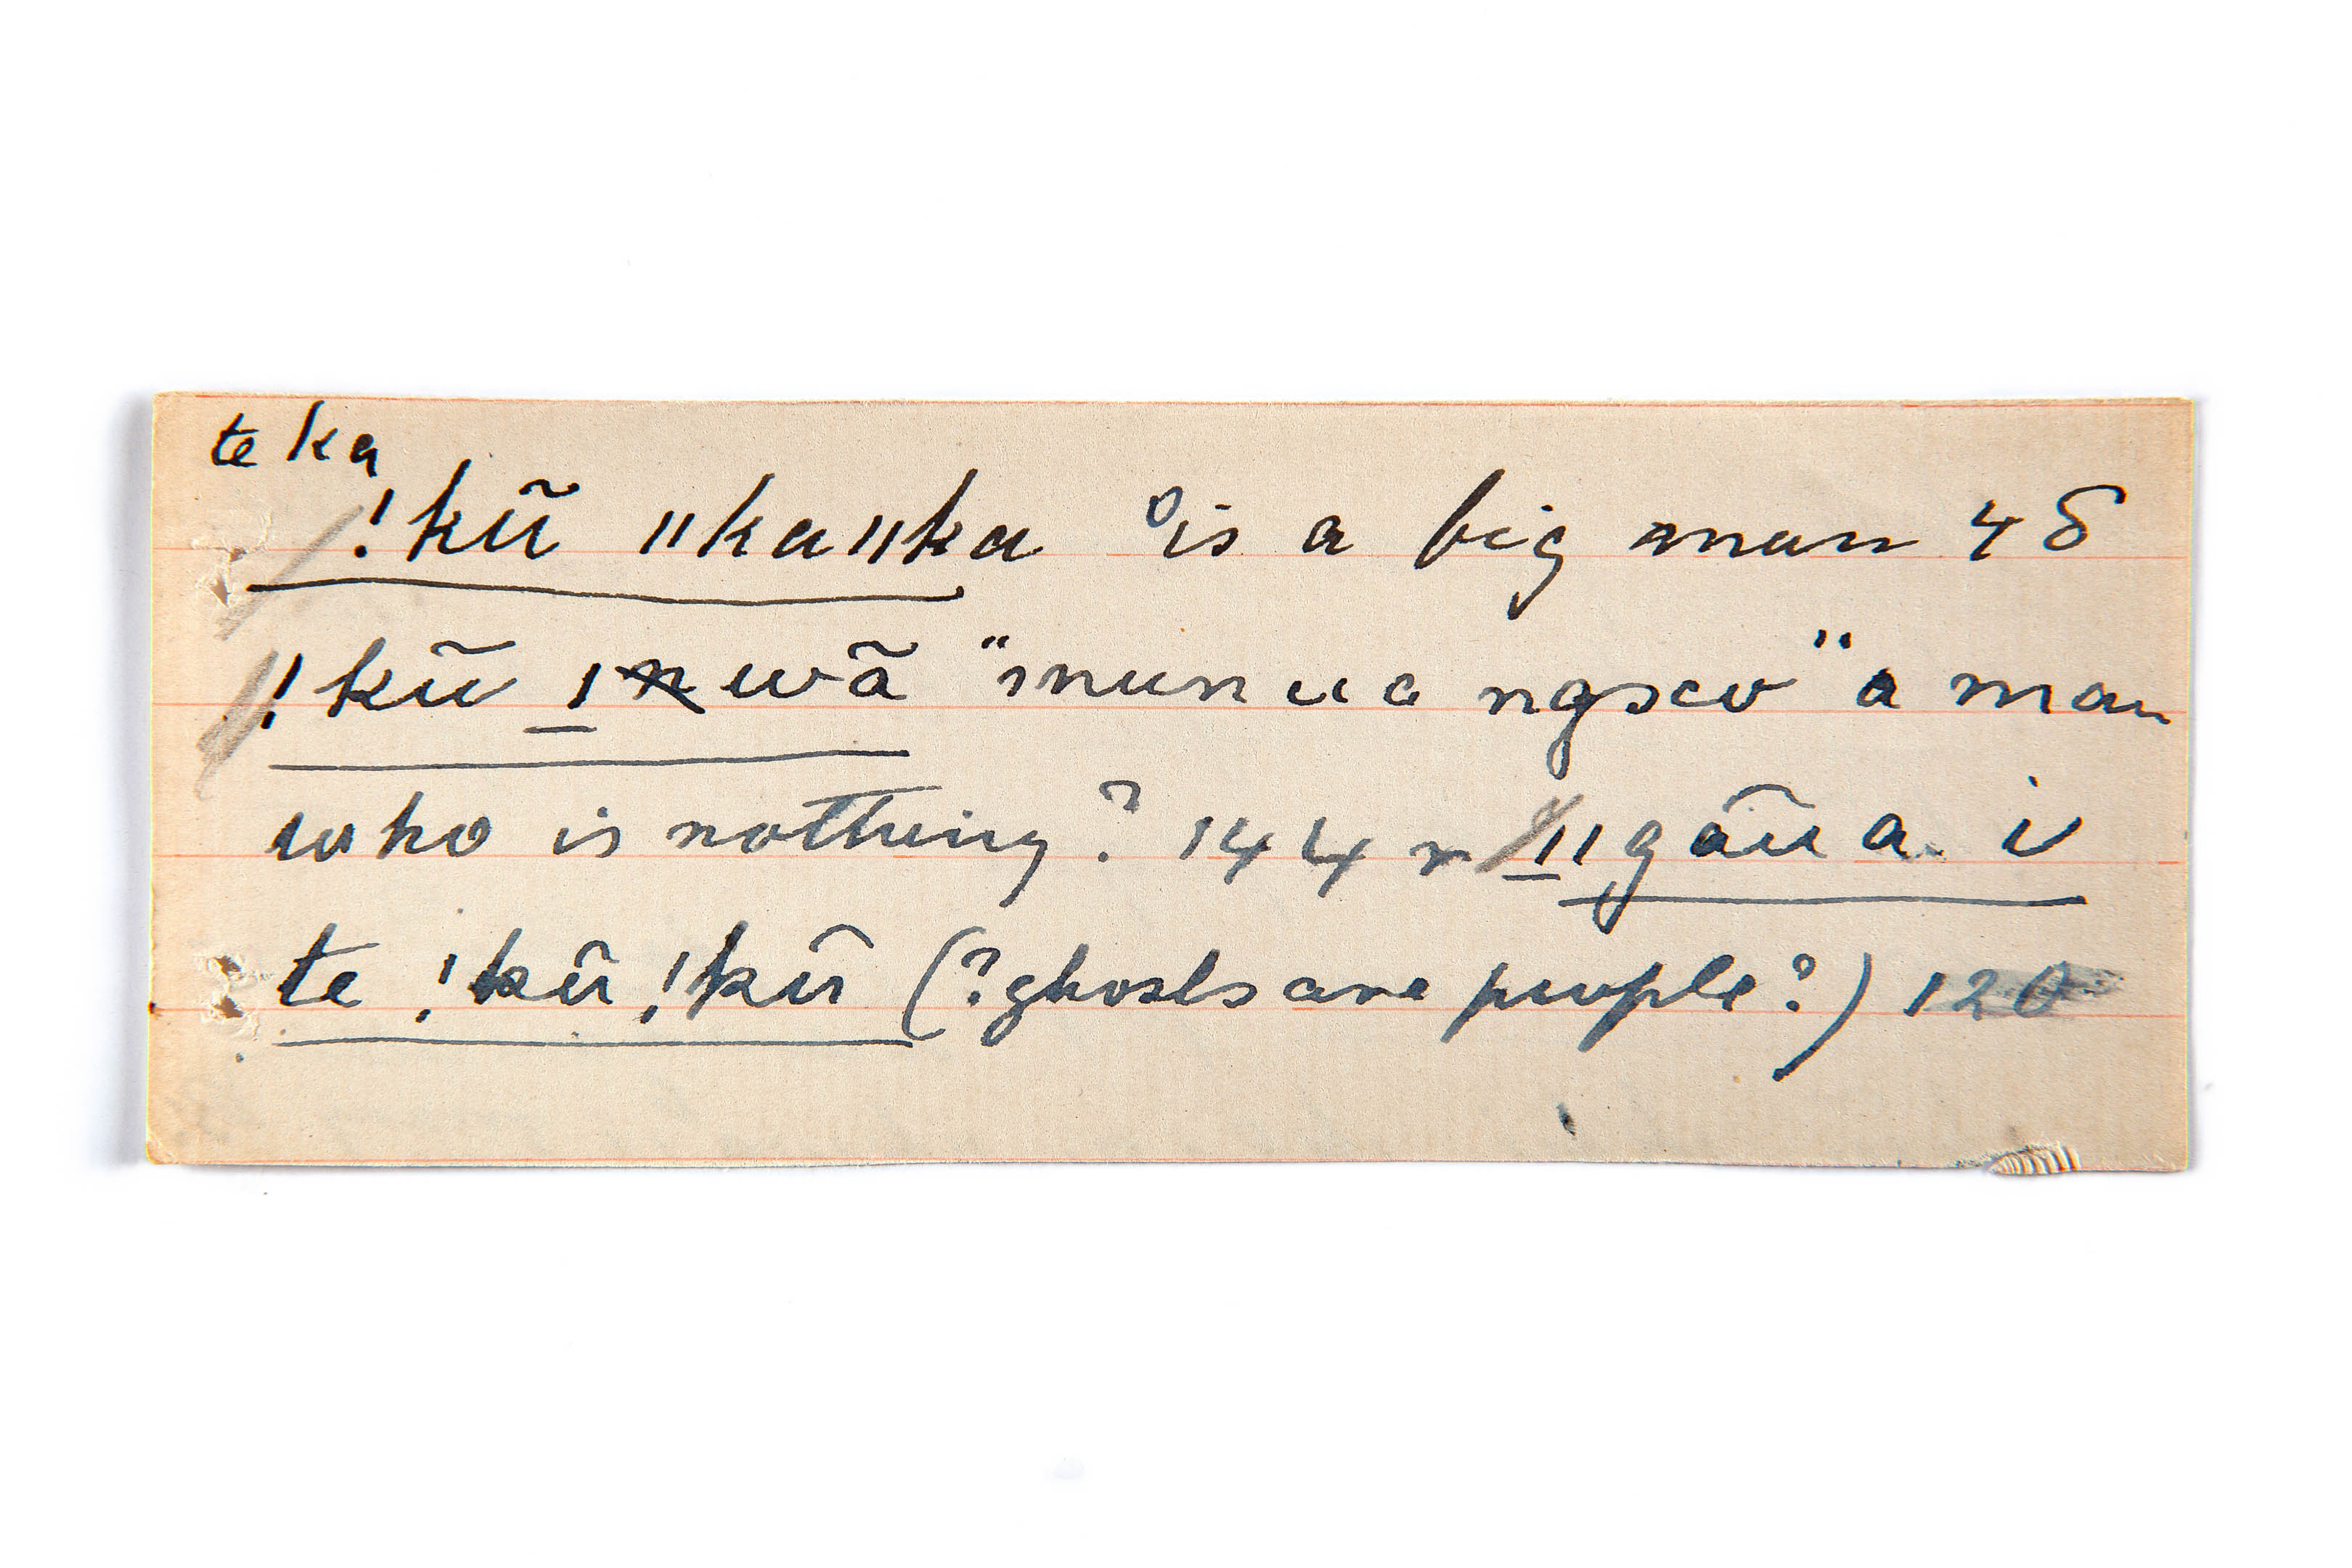 te ka
!kũ ǁkaǁka is a big man 48
!kũ ǀnwã "munua ngsco" a man
who is nothing? 144 r ǁgãũa i
te !kũ !kũ (?ghosts are people?) 120